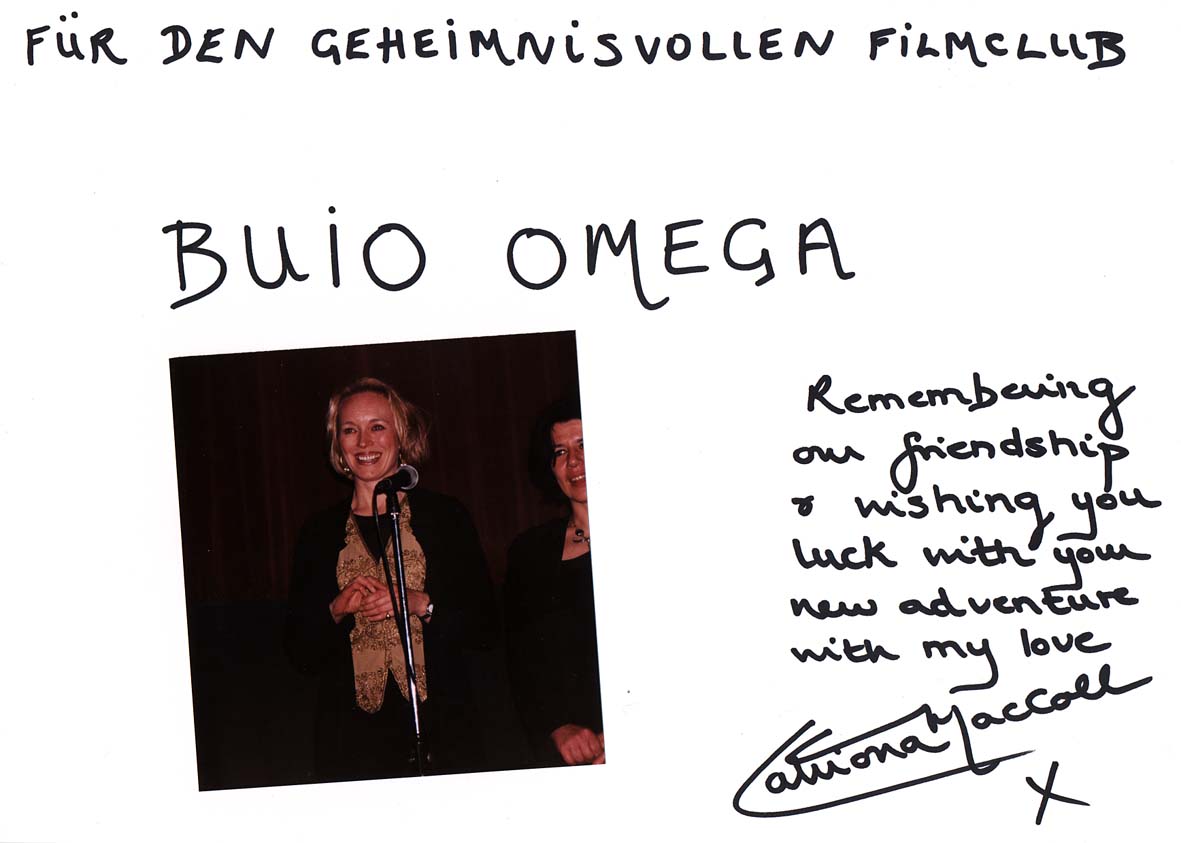 FÜR DEN GEHEIMNISVOLLEN FILMCLUB
BUIO OMEGA
Remembering
our friendship
& wishing you
luck with your
new adventure
with my love
Catriona MacColl
X